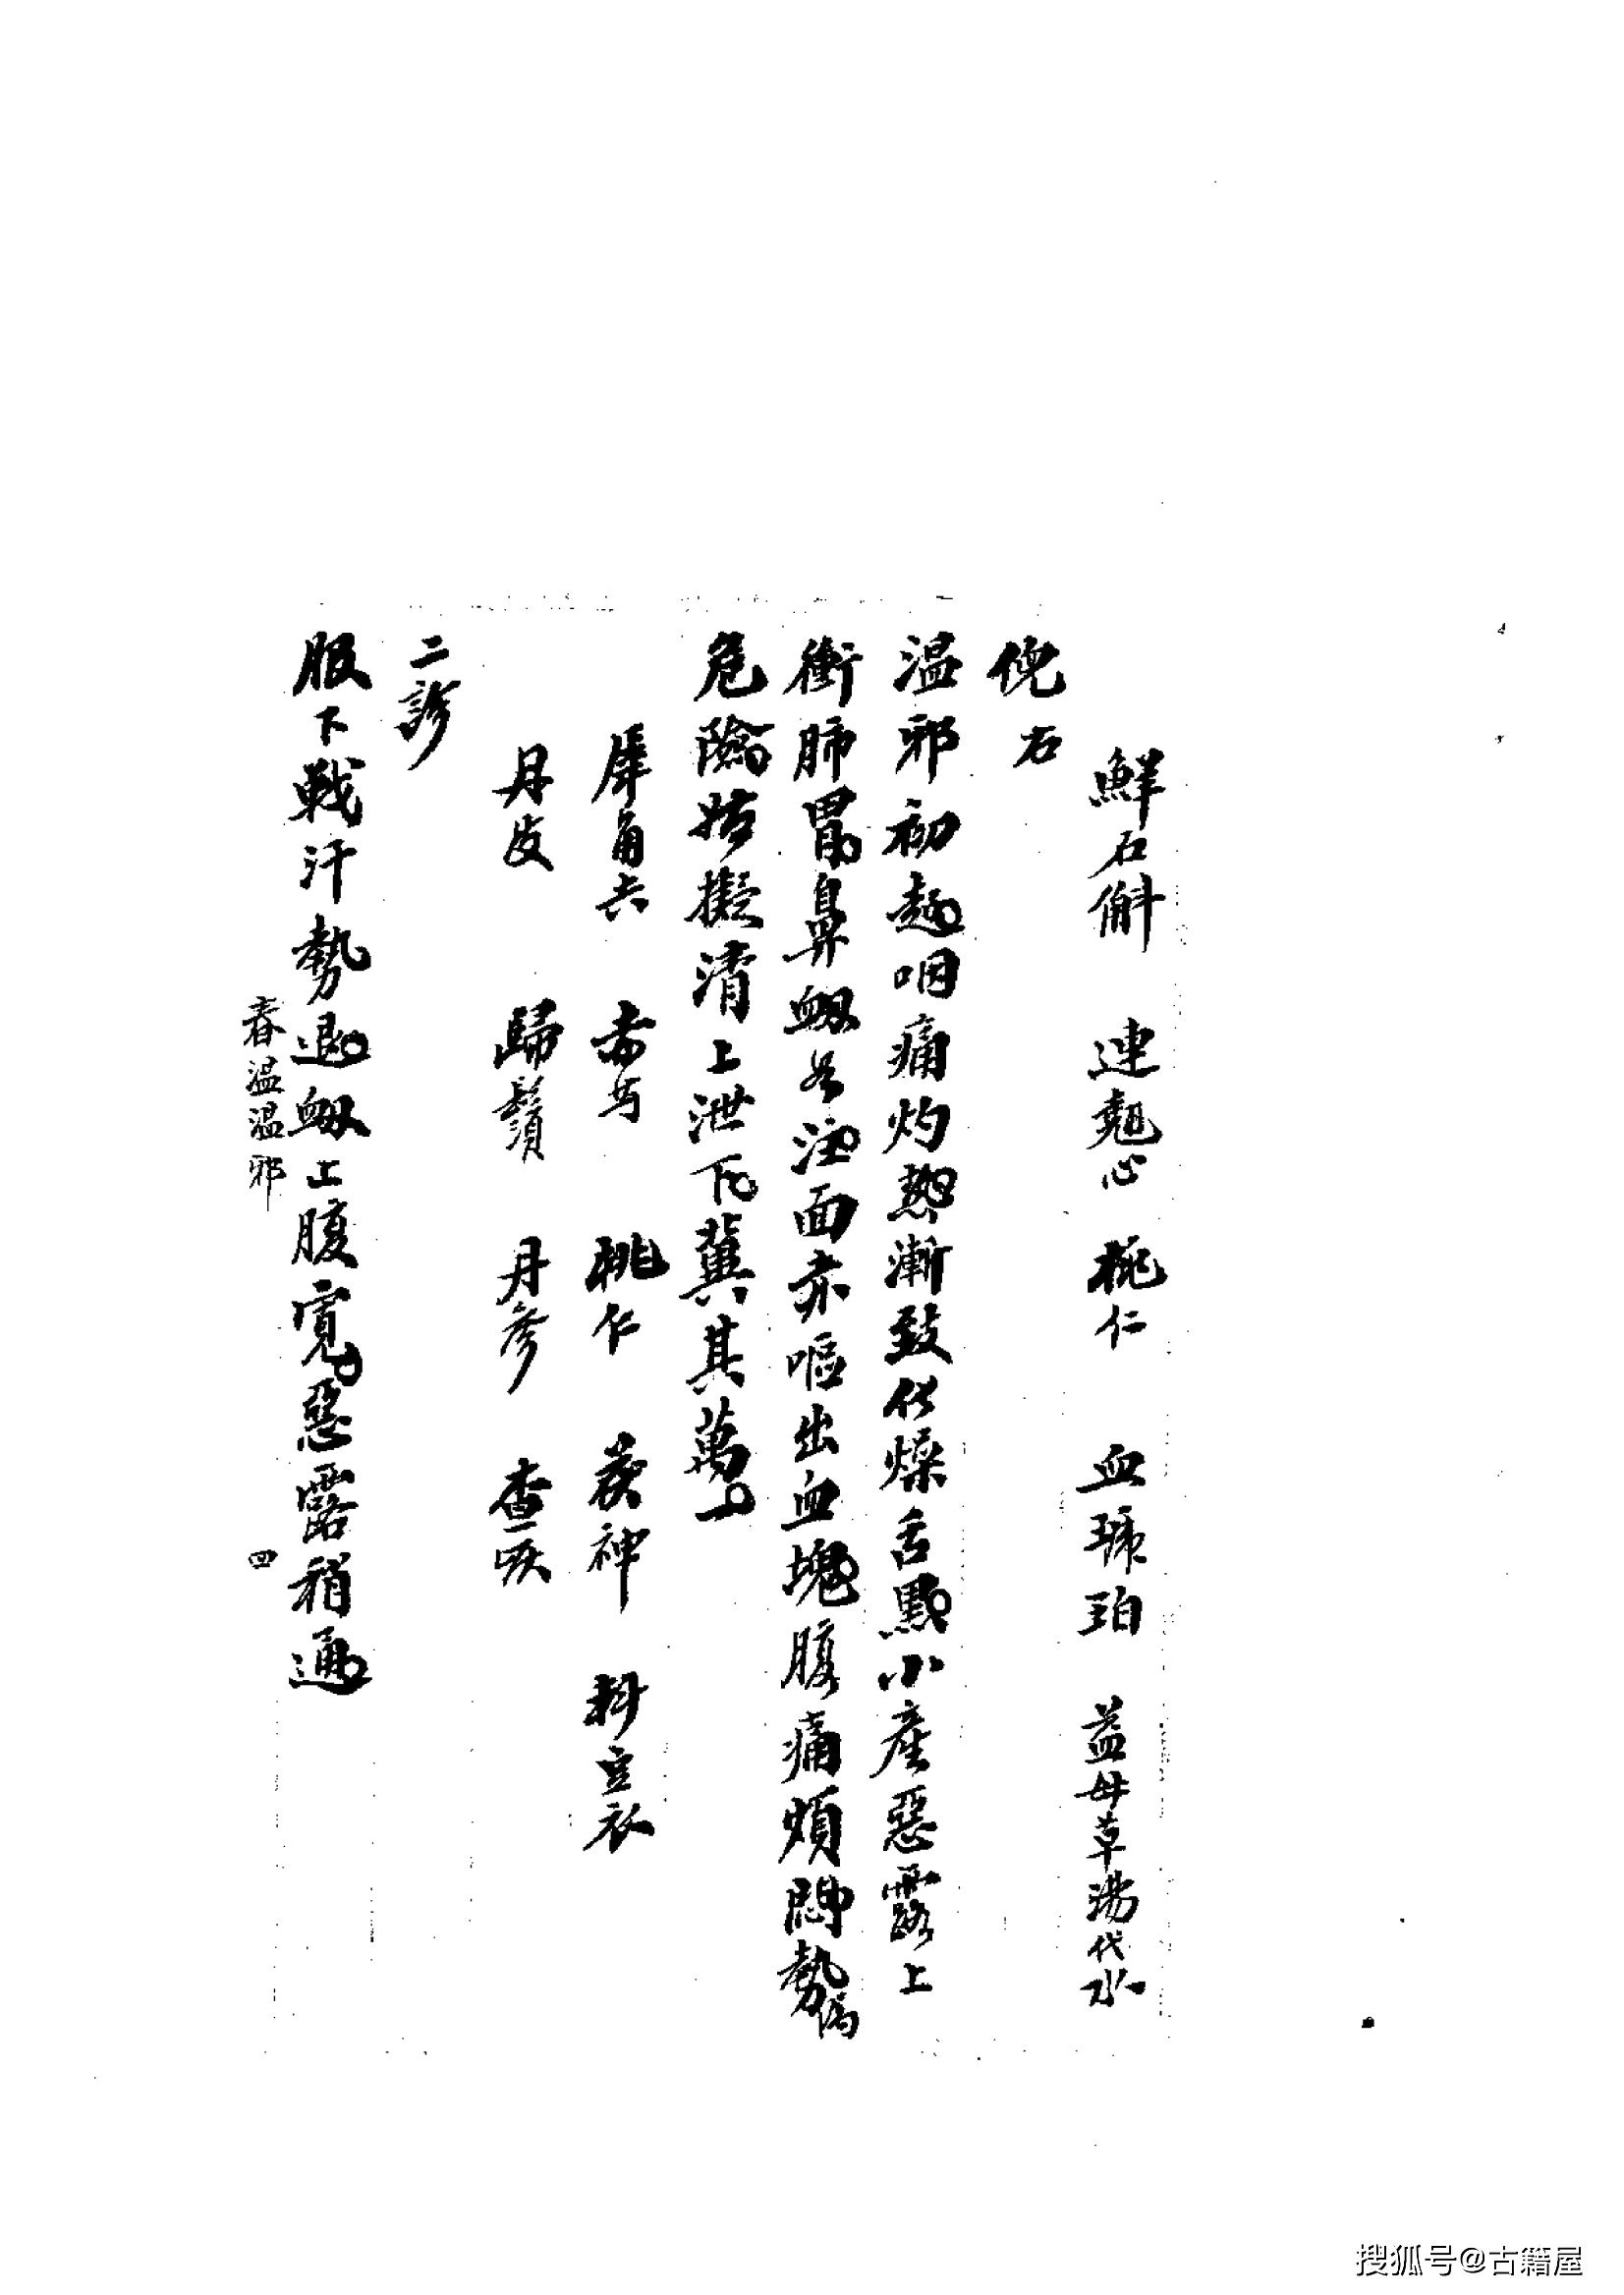 鮮石斛 連翹心 桃仁 血琥珀 益母草湯代水
倪右
温邪初起咽痛灼熱漸致化燥舌黑小產惡露上
衝肺胃鼻衂如注面赤嘔出血塊腹痛煩悶勢偽
危險姑擬清上泄下冀其萬一
犀角六 赤芍 桃仁 茯神 料豆衣
丹皮 歸鬚 丹參 查炭
二診
服下戰汗勢退衂止腹寛惡露稍通
春温温邪 四
搜狐号@古籍屋